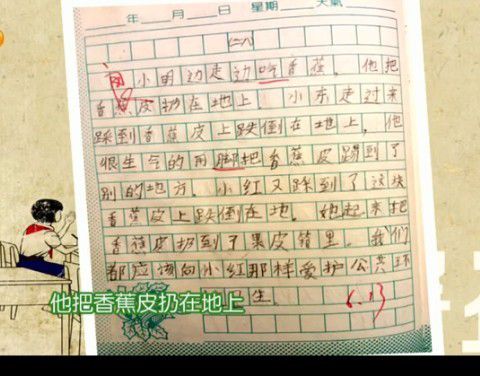 年 月 日 星期 天氣
(二八)
小明边走边吃香蕉。他把
香蕉皮扔在地上 小东走过来
踩到香蕉皮上跌倒在地上,他
很生气的用脚把香蕉皮踢到了
别的地方。小红又踩到了这块
香蕉皮上跌倒在地。她起来把
香蕉皮扔到了果皮箱里。我们
都应该向小红那样爱护公共环
卫生。
6.13
他把香蕉皮扔在地上